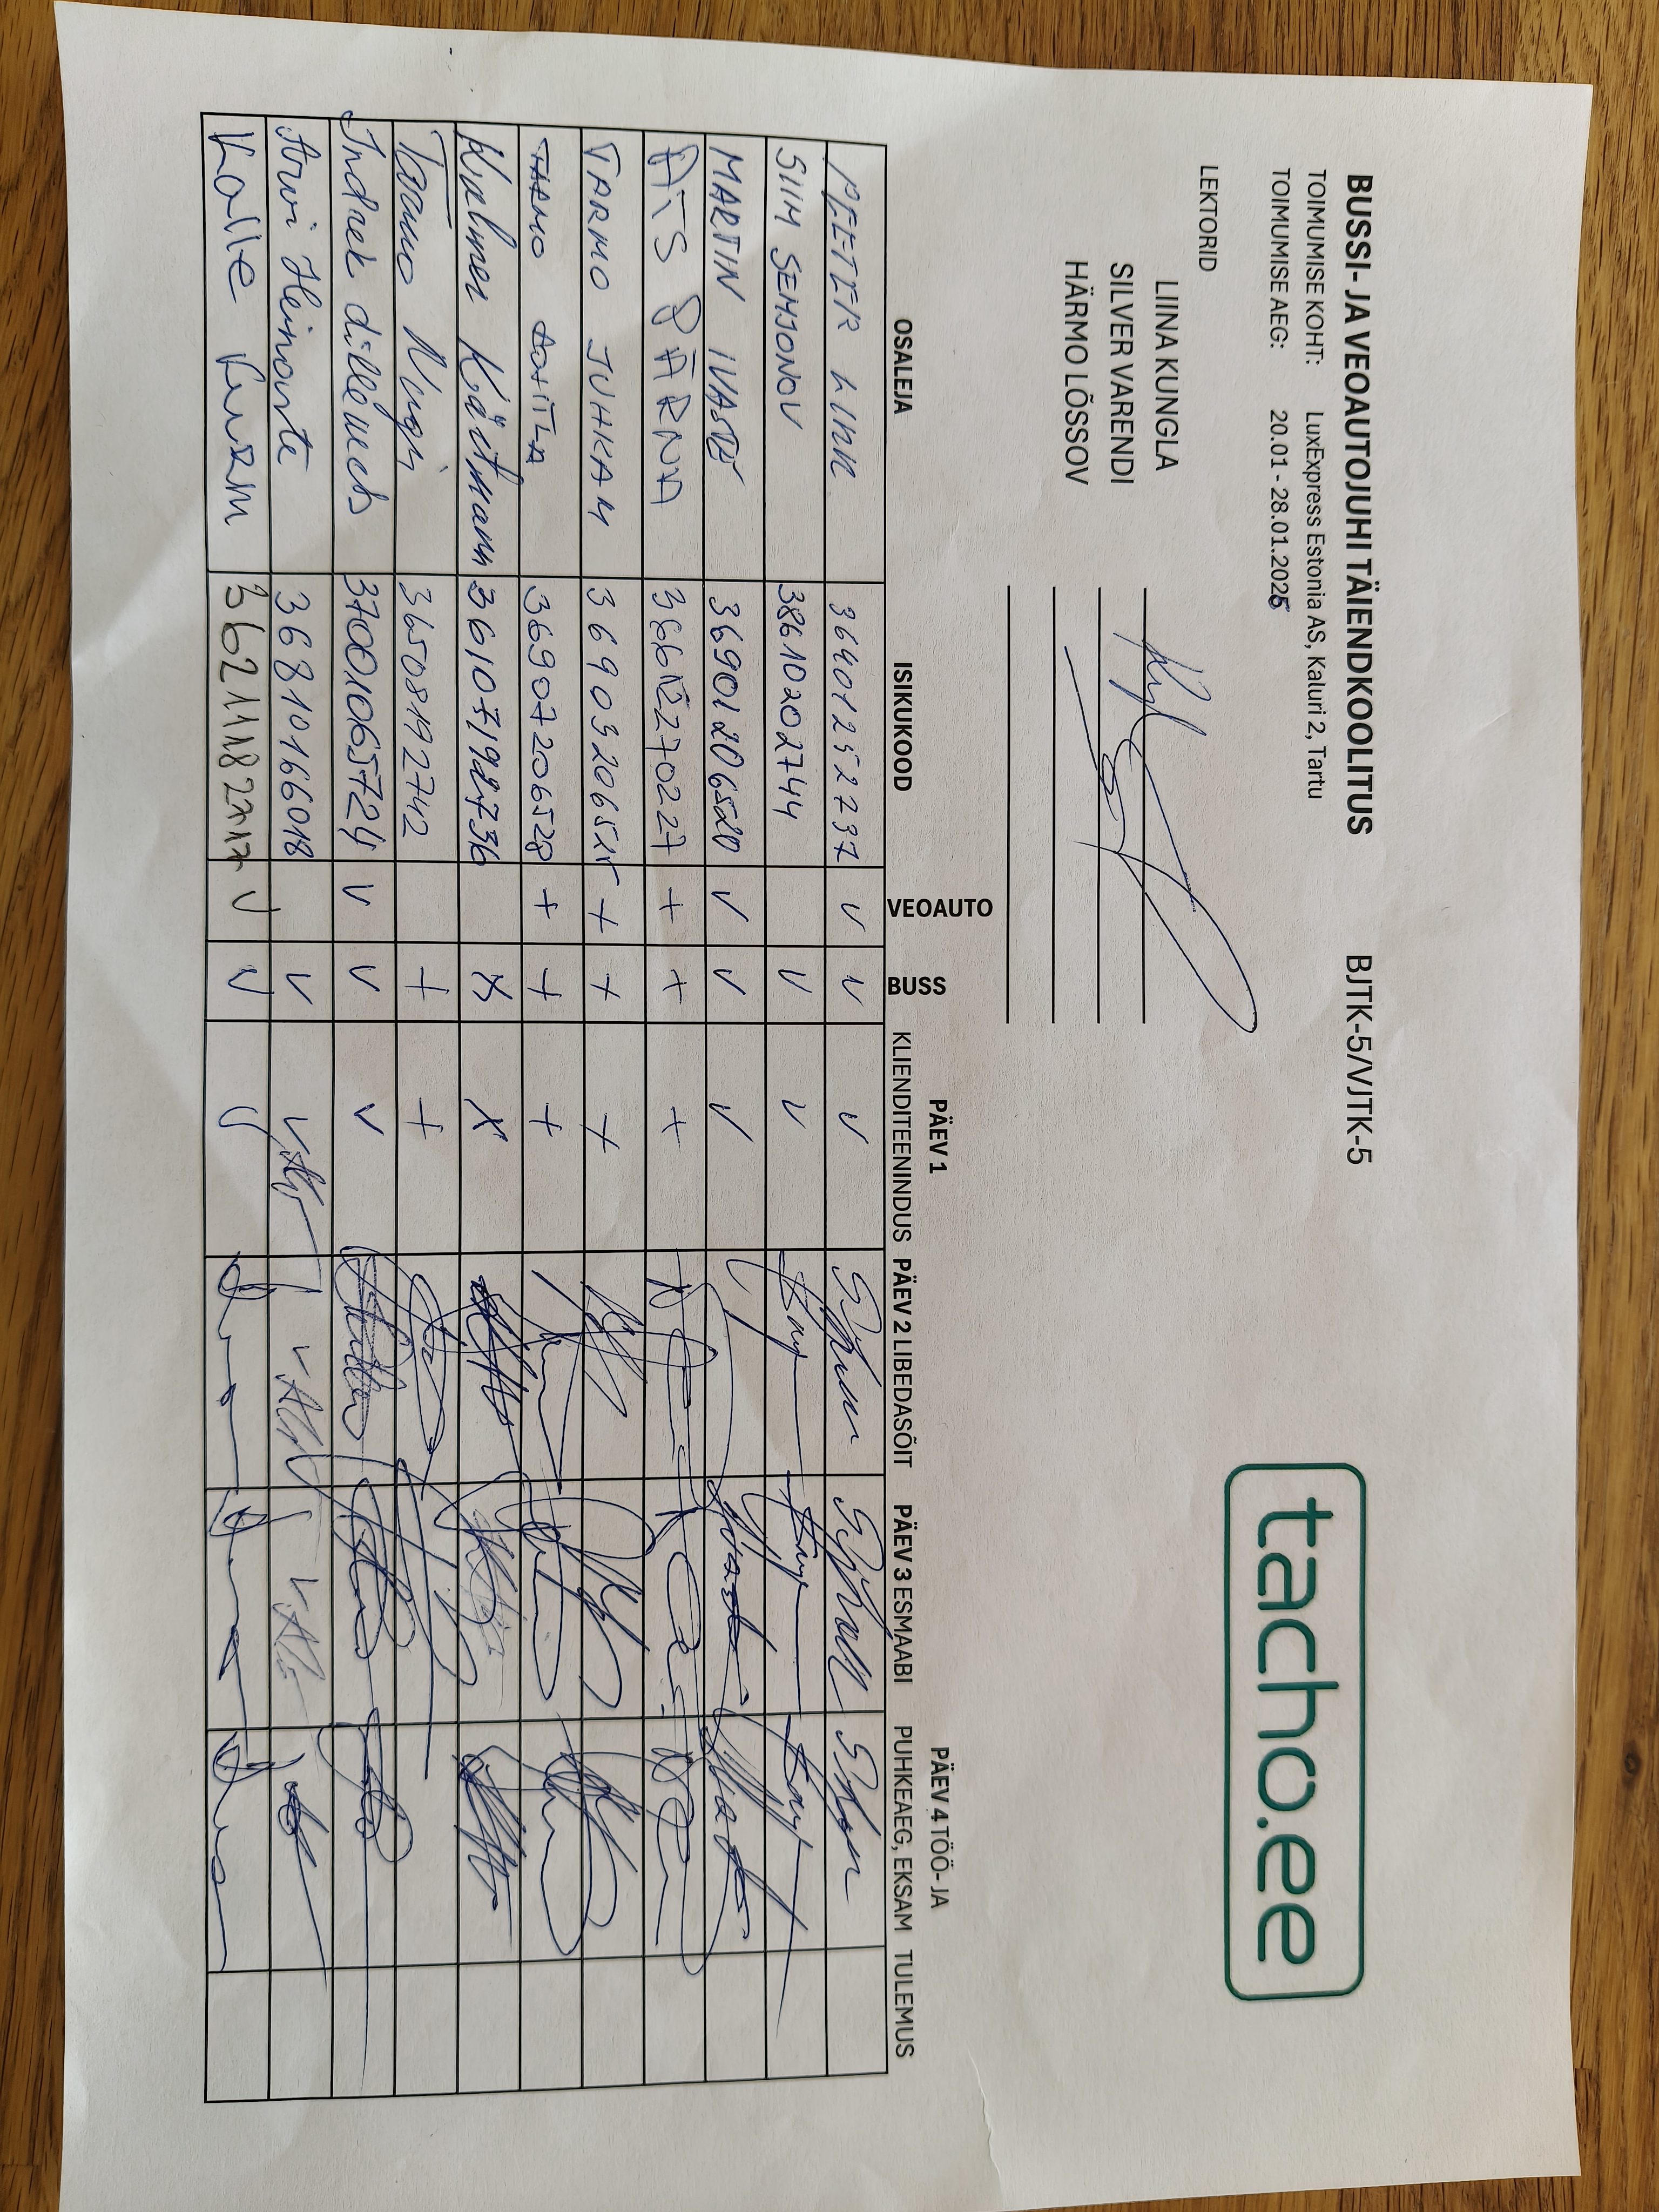 BUSSI- JA VEOAUTOJUHI TÄIENDKOOLITUS BJTK-5/VJTK-5
tacho.ee
TOIMUMISE KOHT: LuxExpress Estonia AS, Kaluri 2, Tartu
TOIMUMISE AEG: 20.01 - 28.01.2026
LEKTORID
LIINA KUNGLA
SILVER VARENDI
HÄRMO LÕSSOV
OSALEJA ISIKUKOOD VEOAUTO BUSS PÄEV 1 KLIENDITEENINDUS PÄEV 2 LIBEDASÕIT PÄEV 3 ESMAABI PÄEV 4 TÖÖ- JA PUHKEAEG, EKSAM TULEMUS
PEETER LINK 36401252737 V V V
SIIM SEMJONOV 38610202744 V V
MARTIN IVASTE 36901206520 V V V
AIS PÄRNA + + +
TARMO JUHKAM + + +
TARMO 36907206528 + + +
Kalmer Käätmann 36107192736 X X
Taimo Nugi 36508192742 + +
Indrek 37001065724 V V V
Arvi Heinoste 36810166018 V V
Kalle Kuram V V V